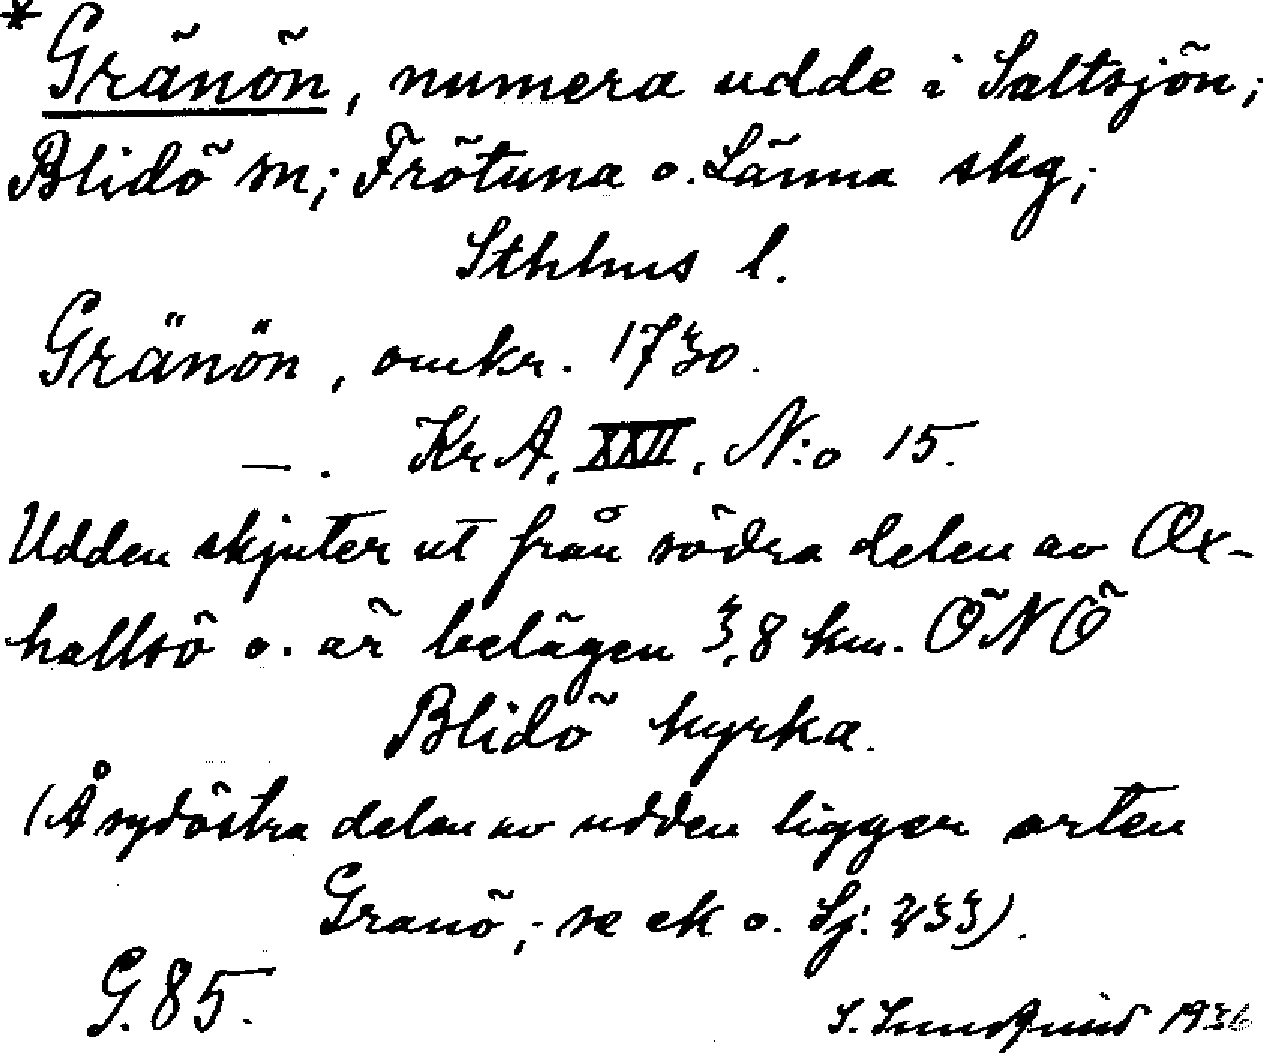 * Gränön, numera udde i Saltsjön;
Blidö sn; Frötuna o. Länna skg;
Sthlms l.
Gränön, omkr. 1730.
—. Kr A, XXII, N:o 15.
Udden skjuter ut från södra delen av Ox-
hallsö o. är belägen 3,8 km. ÖNÖ
Blidö kyrka.
(Å sydöstra delen av udden ligger orten
Granö, se ek o. Sj: 233).
G. 85.
S. 1936